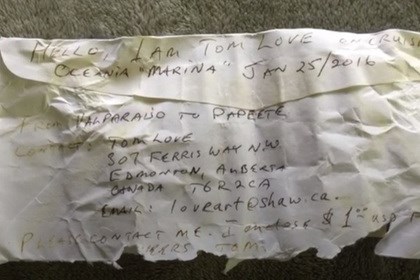 HELLO, I AM TOM LOVE ON CRUISE
OCEANIA "MARINA" JAN 25/2016
FROM VALPARAISO TO PAPEETE
CONTACT: TOM LOVE
307 FERRIS WAY N.W.
EDMONTON, ALBERTA
CANADA T6R2CA
EMAIL: loveart@shaw.ca.
PLEASE CONTACT ME. I enclose $1.00 USD
CHEERS TOM.